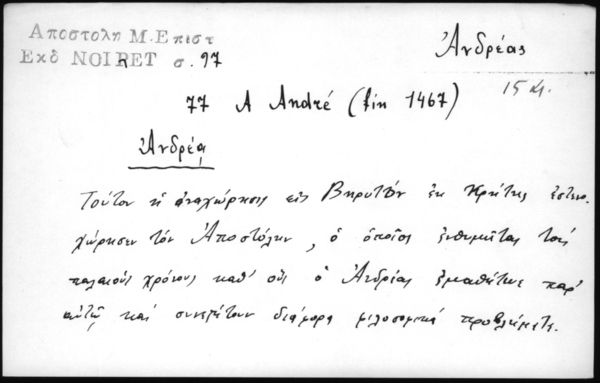 Αποστολη Μ. Επιστ
Εκδ NOIRET σ. 97
Ἀνδρέας
15 αι.
77 A André (fin 1467)
Ἀνδρέᾳ
Τούτου ἡ ἀναχώρησις εἰς Βηρυτὸν ἐκ Κρήτης ἐστενο-
χώρησεν τὸν Ἀποστόλην, ὁ ὁποῖος ἐνθυμεῖται τοὺς
παλαιοὺς χρόνους καθ' οὓς ὁ Ἀνδρέας ἐμαθήτευε παρ'
αὐτῷ καὶ συνεζήτουν διάφορα φιλοσοφικὰ προβλήματα.